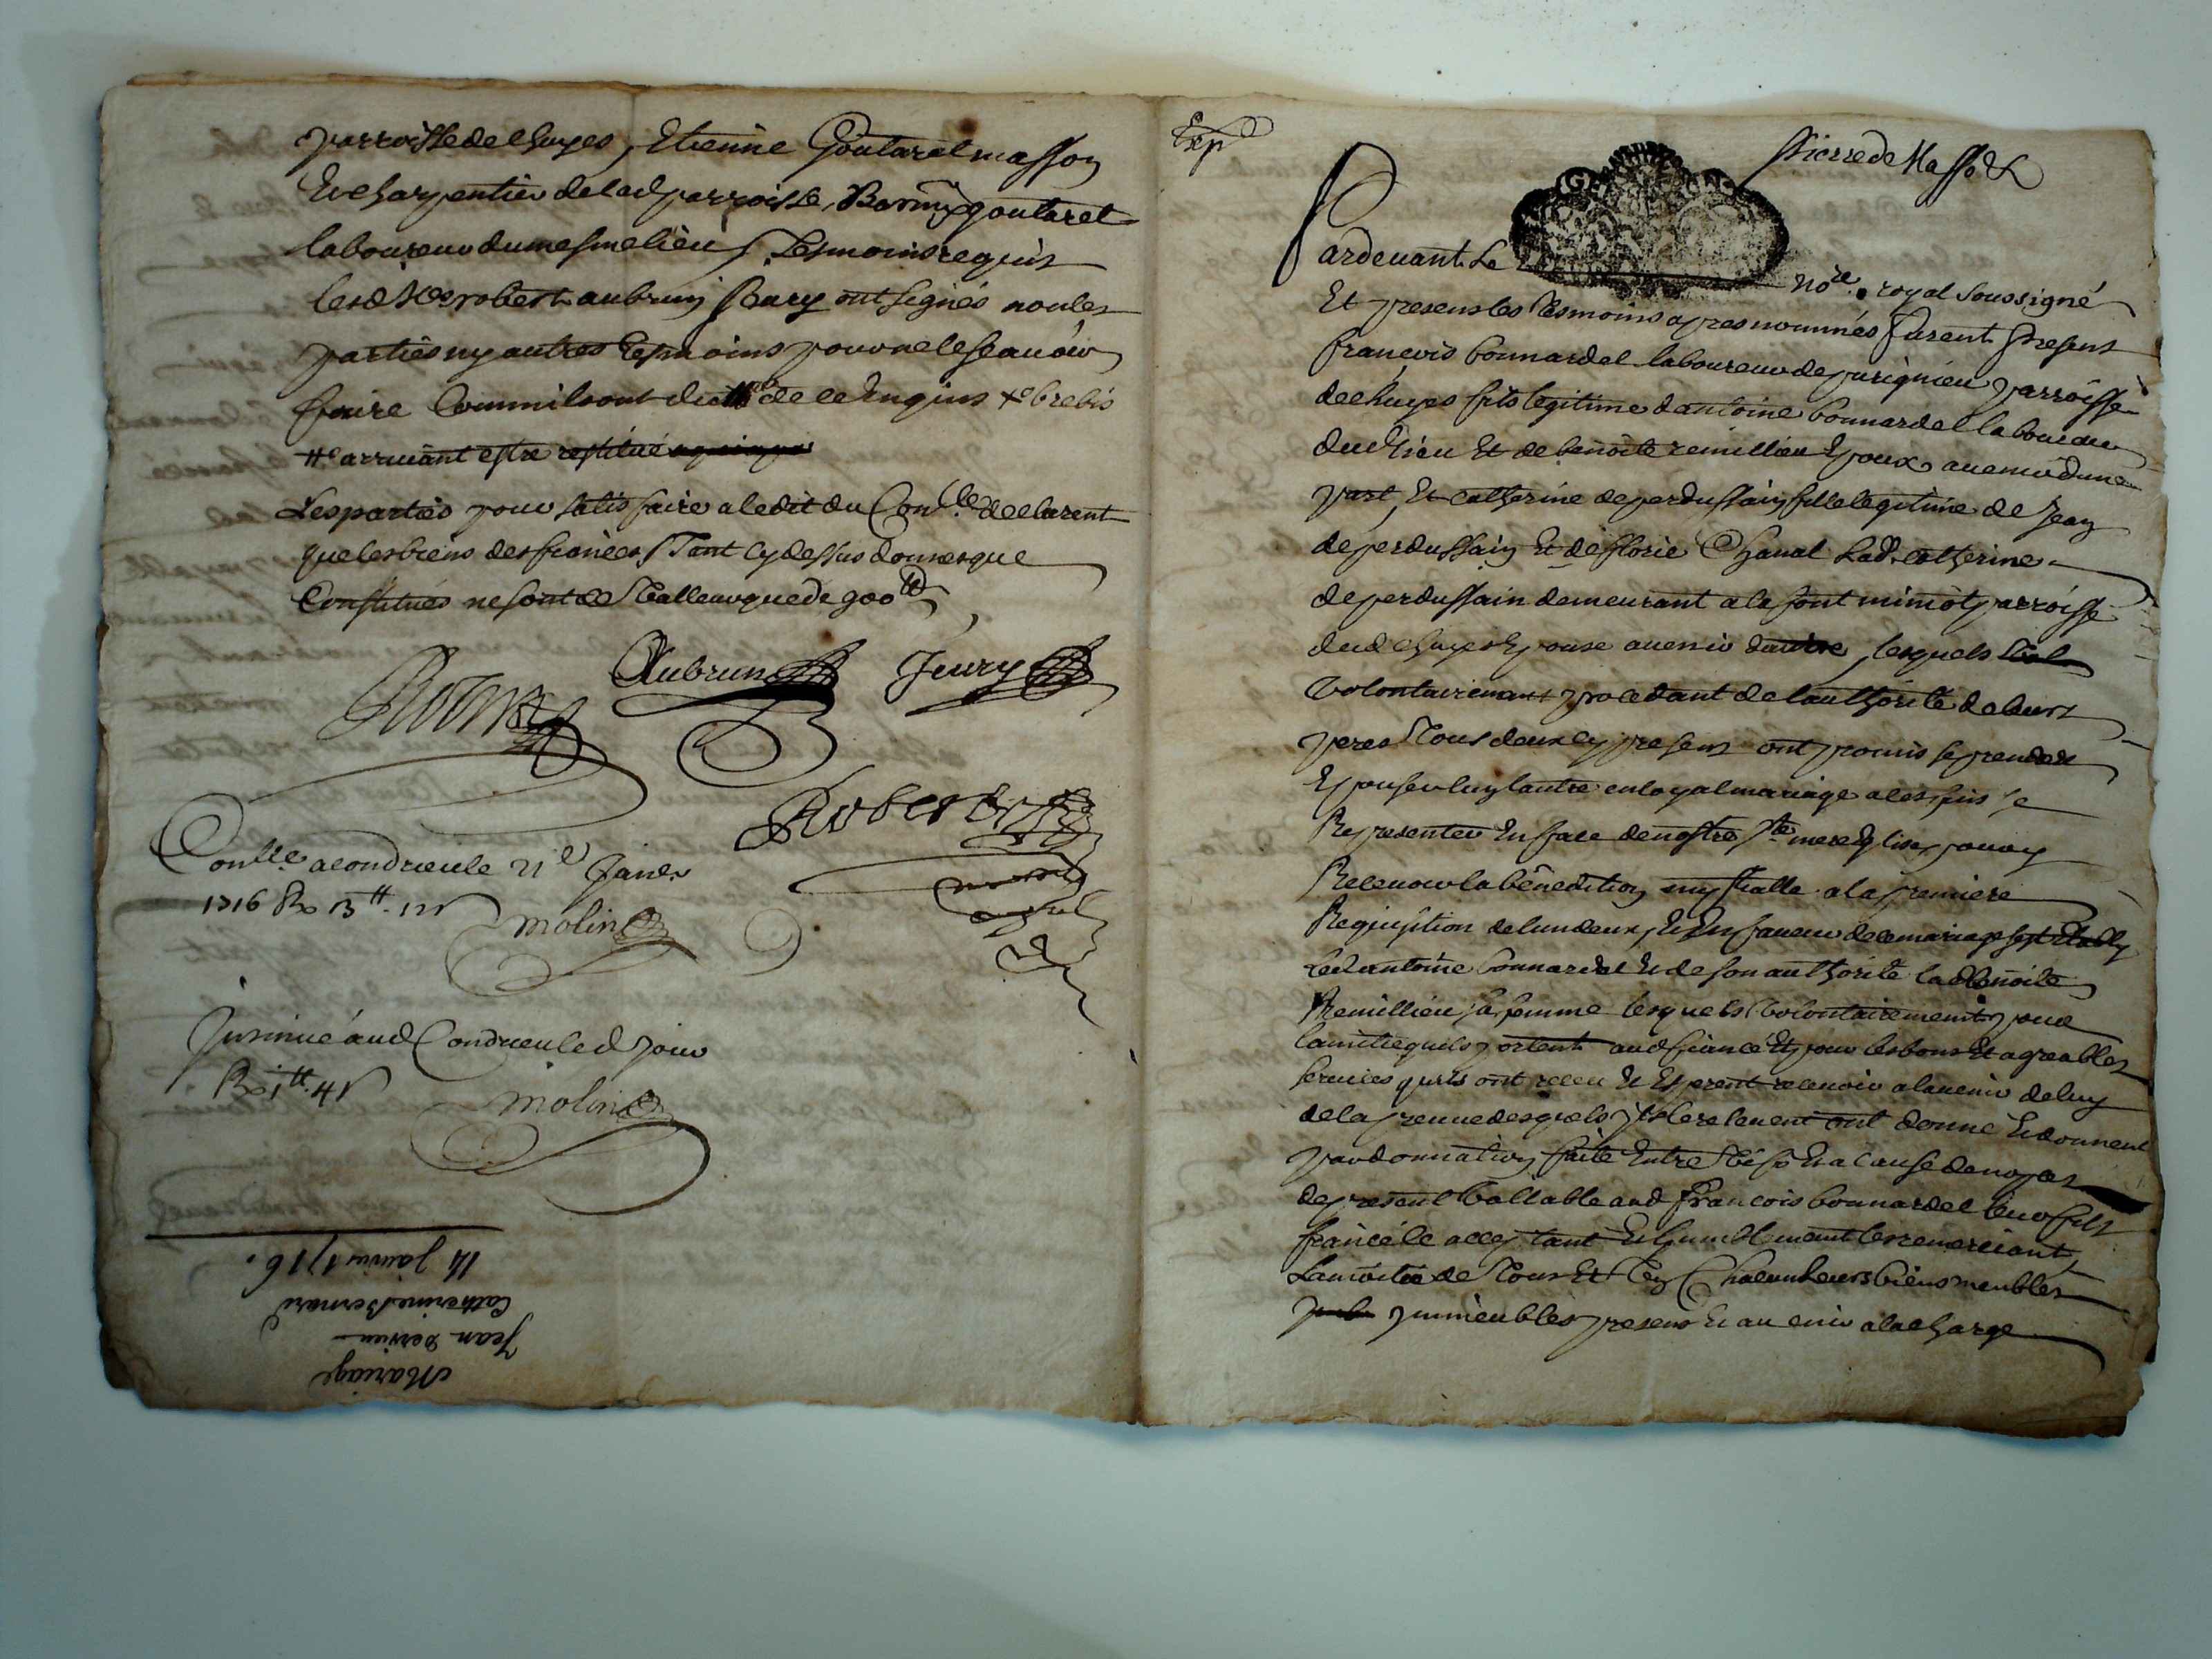 parroisse de chuyes, Etienne Goutarel masson
Et charpentier de lad parroisse, Barmy goutarel
laboureur du mesme lieu Tesmoins requis
lesd robert aubrun Jeury ont signés non les
parties ny autres tesmoins pour ne le scauoir
faire Comm ils ont dict de ce Enquis brebis
arriuant estre restitué
Les parties pour satisfaire a ledit du Con.lle declarent
que les biens des fiancés Tant cy dessus donnes que
Constitués ne sont de Valleur que de 900 tt
Aubrun Jeury
Robert
Conlle a condrieu le 21e Janer
1716 Rx 13 tt.
molin
Jnsinué aud Condrieu led jour
Rx 1 tt. 4 s
molin
14 Januier 1716.
Catherine Bernard
Jean Dervieu
Mariage
Exp
Pierre de Masso
Pardeuant Le nore. royal soussigné
Et presens les tesmoins apres nommés furent Presens
françois bonnardel laboureur de jurignieu parroisse
de chuyes fils legitime dantoine bonnardel laboureur
dud lieu Et de benoite remillieu Epoux auenir dune
part, Et catherine deperdussain fille legitime de Jean
deperdussain Et de florie Chanal lad. catherine
deperdussain demeurant a la font mimot parroisse
dud chuyes Epouse auenir dautre, lesquels
volontairement procedant de lauthorité de leurs
peres Tous deux cy presens ont promis se prendre
Epouser luy lautre en loyal mariage a ces fins se
Representer En face de nostre ste mere Eglise pour y
Receuoir la bénédition nuptialle a la premiere
Requisition de lun deux, Et En faueur de ce mariage sest Estably
led antoine bonnardel Et de son authorité lad benoite
Remillieu sa femme lesquels volontairement pour
lamitié quils portent aud fiancé Et pour les bons Et agreables
seruices quils ont receu Et Esperent receuoir a lauenir de luy
de la preuue desquels ils le releuent ont donné Et donnent
par donnation faite Entre vifs Et a cause de nopces
de present Vallable aud François bonnardel leur fils
fiancé le acceptant Et humblement les remerciant
La moitié de Tous Et Un Chacun leurs biens meubles
jmmeubles presens Et auenir a la charge